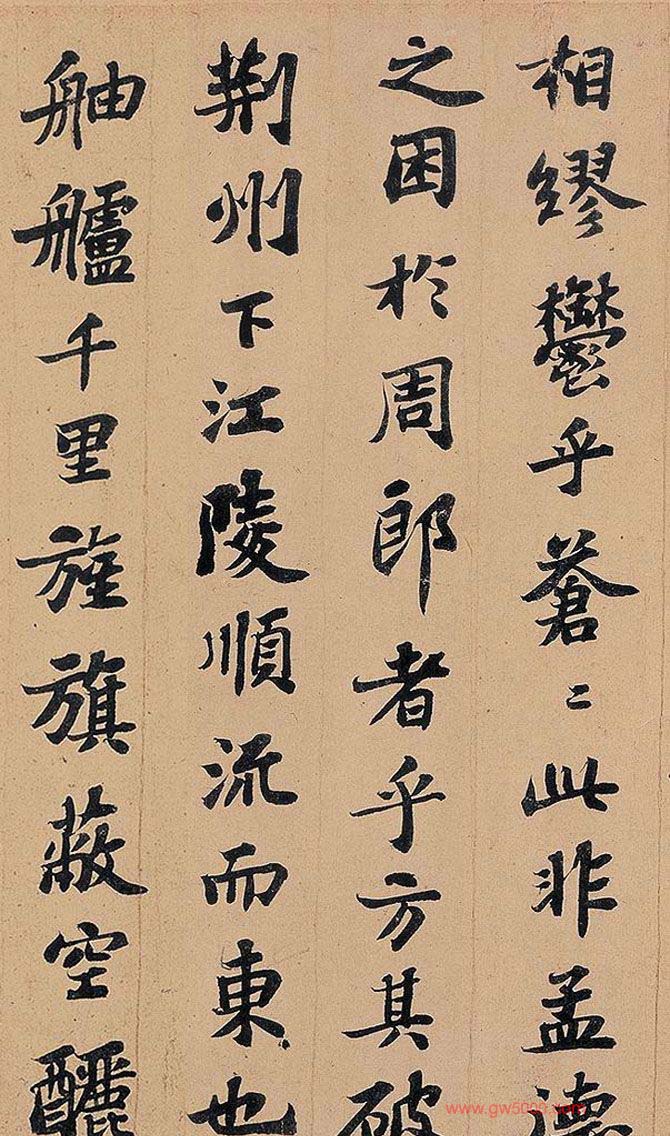 相繆鬱乎蒼〻此非孟德
之困於周郎者乎方其破
荆州下江陵順流而東也
舳艫千里旌旗蔽空釃
www.gw5000.com